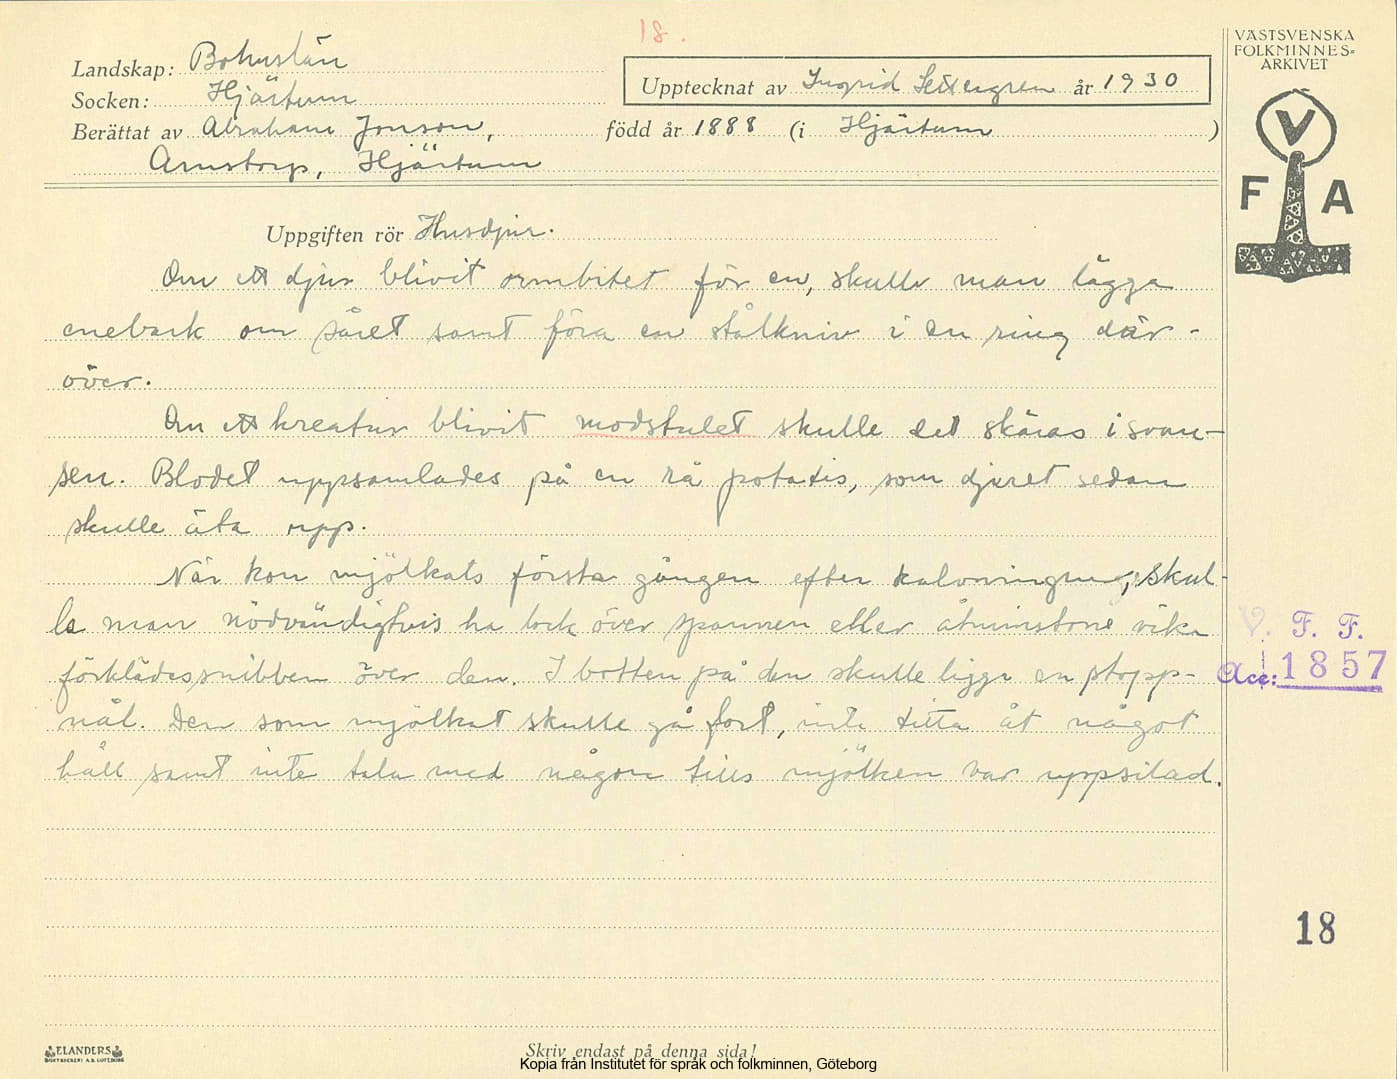 18.
VÄSTSVENSKA
FOLKMINNES-
ARKIVET
V
F A
Landskap: Bohuslän
Socken: Hjärtum
Upptecknat av Ingrid Settergren år 1930
Berättat av Abraham Jonson, född år 1888 (i Hjärtum)
Arnstorp, Hjärtum
Uppgiften rör Husdjur.
Om ett djur blivit ormbitet för en, skulle man lägga
enebark om såret samt föra en stålkniv i en ring där-
över.
Om ett kreatur blivit modstulet skulle det skäras i svan-
sen. Blodet uppsamlades på en rå potatis, som djuret sedan
skulle äta upp.
När kon mjölkats första gången efter kalvningen, skul-
le man nödvändigtvis ha lock över spannen eller åtminstone vika
förklädessnibben över den. I botten på den skulle ligga en stopp-
nål. Den som mjölkat skulle gå fort, inte titta åt något
håll samt inte tala med någon tills mjölken var uppsilad.
V. F. F.
Acc: 1857
18
ELANDERS
BOKTRYCKERI A.B. GÖTEBORG
Skriv endast på denna sida!
Kopia från Institutet för språk och folkminnen, Göteborg